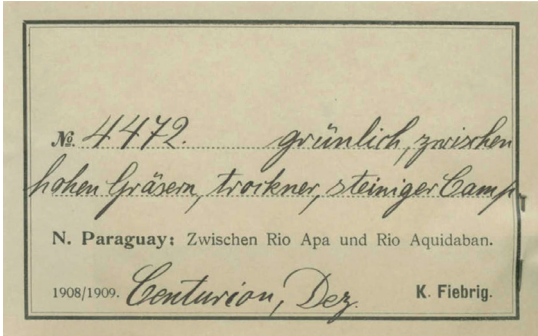 No. 4472. grünlich, zwischen
hohen Gräsern, trockner, steiniger Camp
N. Paraguay: Zwischen Rio Apa und Rio Aquidaban.
1908/1909. Centurion, Dez. K. Fiebrig.